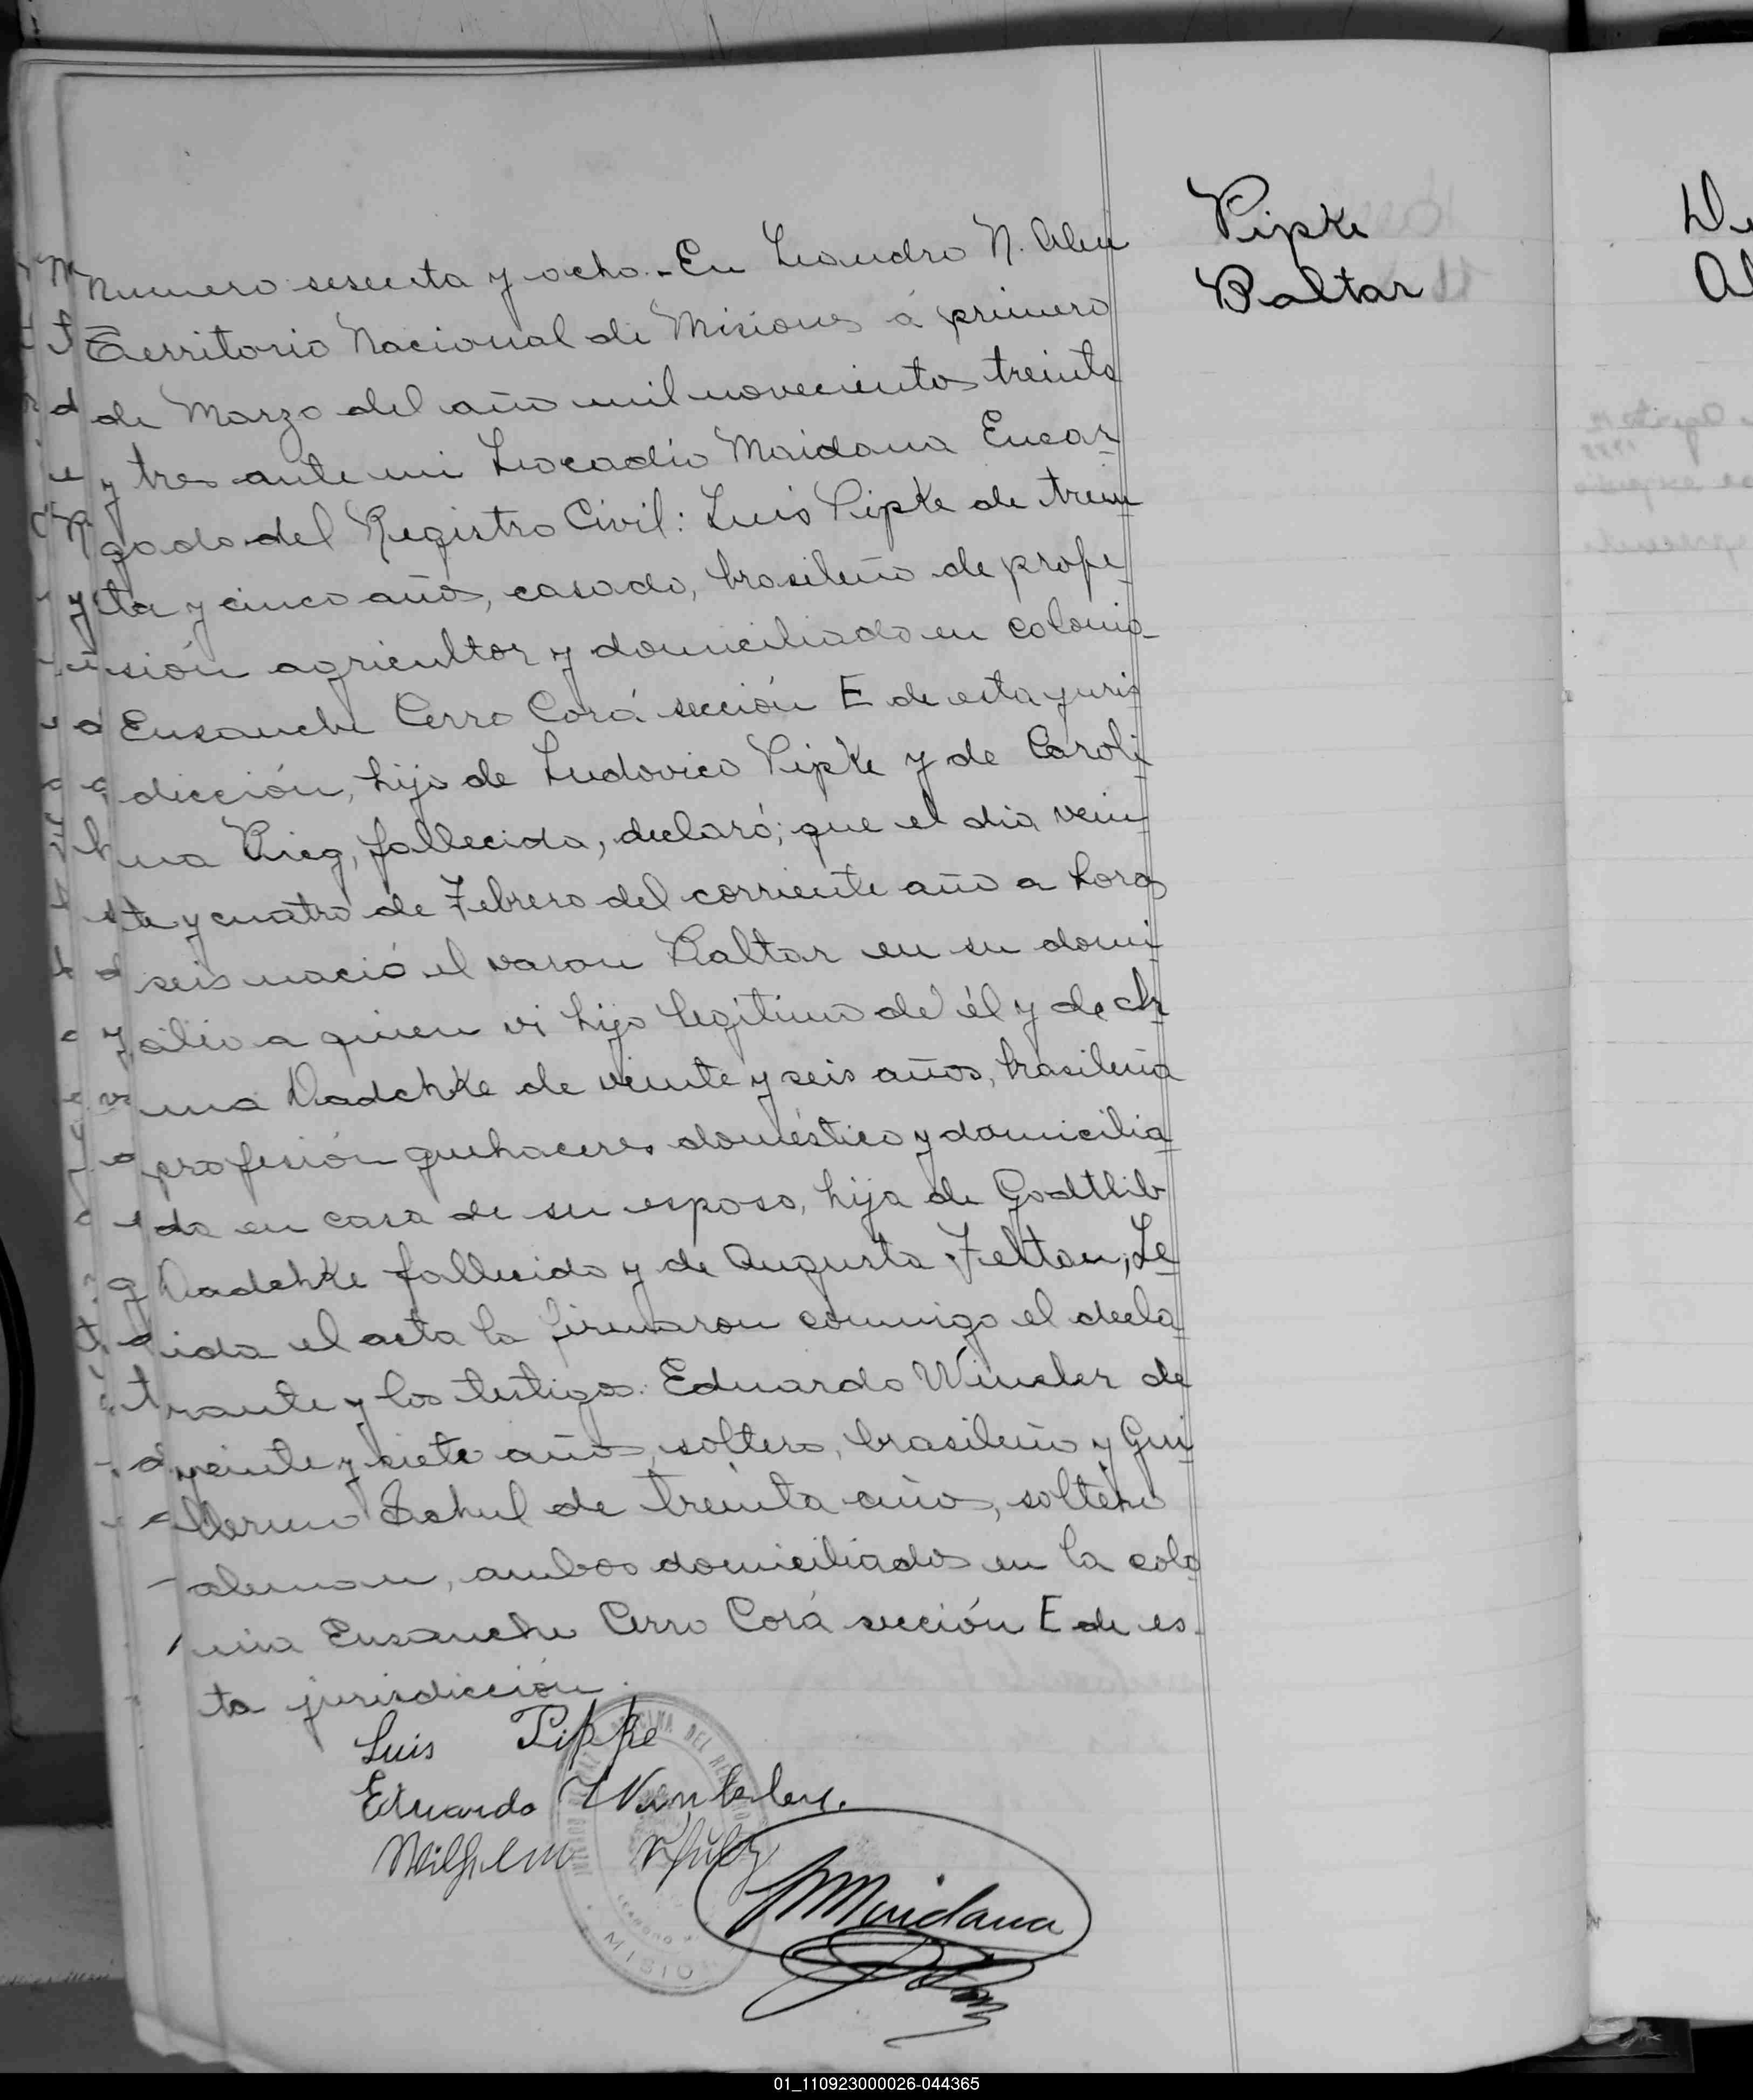 Pipke
Baltar
Numero sesenta y ocho.-En Leandro N. Alem
Territorio Nacional de Misiones á primero
de Marzo del año mil novecientos treinta
y tres ante mi Leocadio Maidana Encar
gado del Registro Civil: Luis Pipke de trein
ta y cinco años, casado, brasileño de profe
sión agricultor y domiciliado en colonia
Ensanche Cerro Corá sección E de esta juris
dicción, hijo de Ludovico Pipke y de Caroli
na fallecida, declaró; que el dia vein
te y cuatro de Febrero del corriente año a horas
seis nació el varon Baltar en su domi
cilio a quien vi hijo legitimo de él y de
ma Dadchke de veinte y seis años, brasileña
profesión quehaceres doméstico y domicilia
da en casa de su esposo, hija de Godtlib
Dadchke fallecido y de Augusta Feltau, Le
ida el acta la firmaron conmigo el decla
rante y los testigos: Eduardo Wincler de
veinte y siete años, soltero, brasileño y Gui
llermo de treinta años, soltero
aleman, ambos domiciliados en la colo
nia Ensanche Cerro Corá sección E de es
ta jurisdicción.
Luis Pipke
Eduardo Winkler.
Wilhelm
Maidana
MISIO
01_110923000026-044365